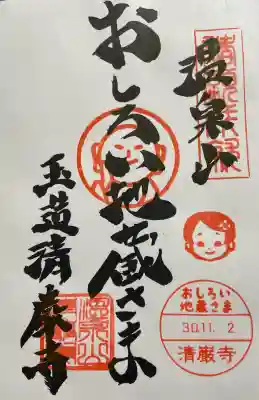 温泉山
おしろい地蔵さま
玉造清厳寺
おしろい
地蔵さま
30.11. 2
清巌寺